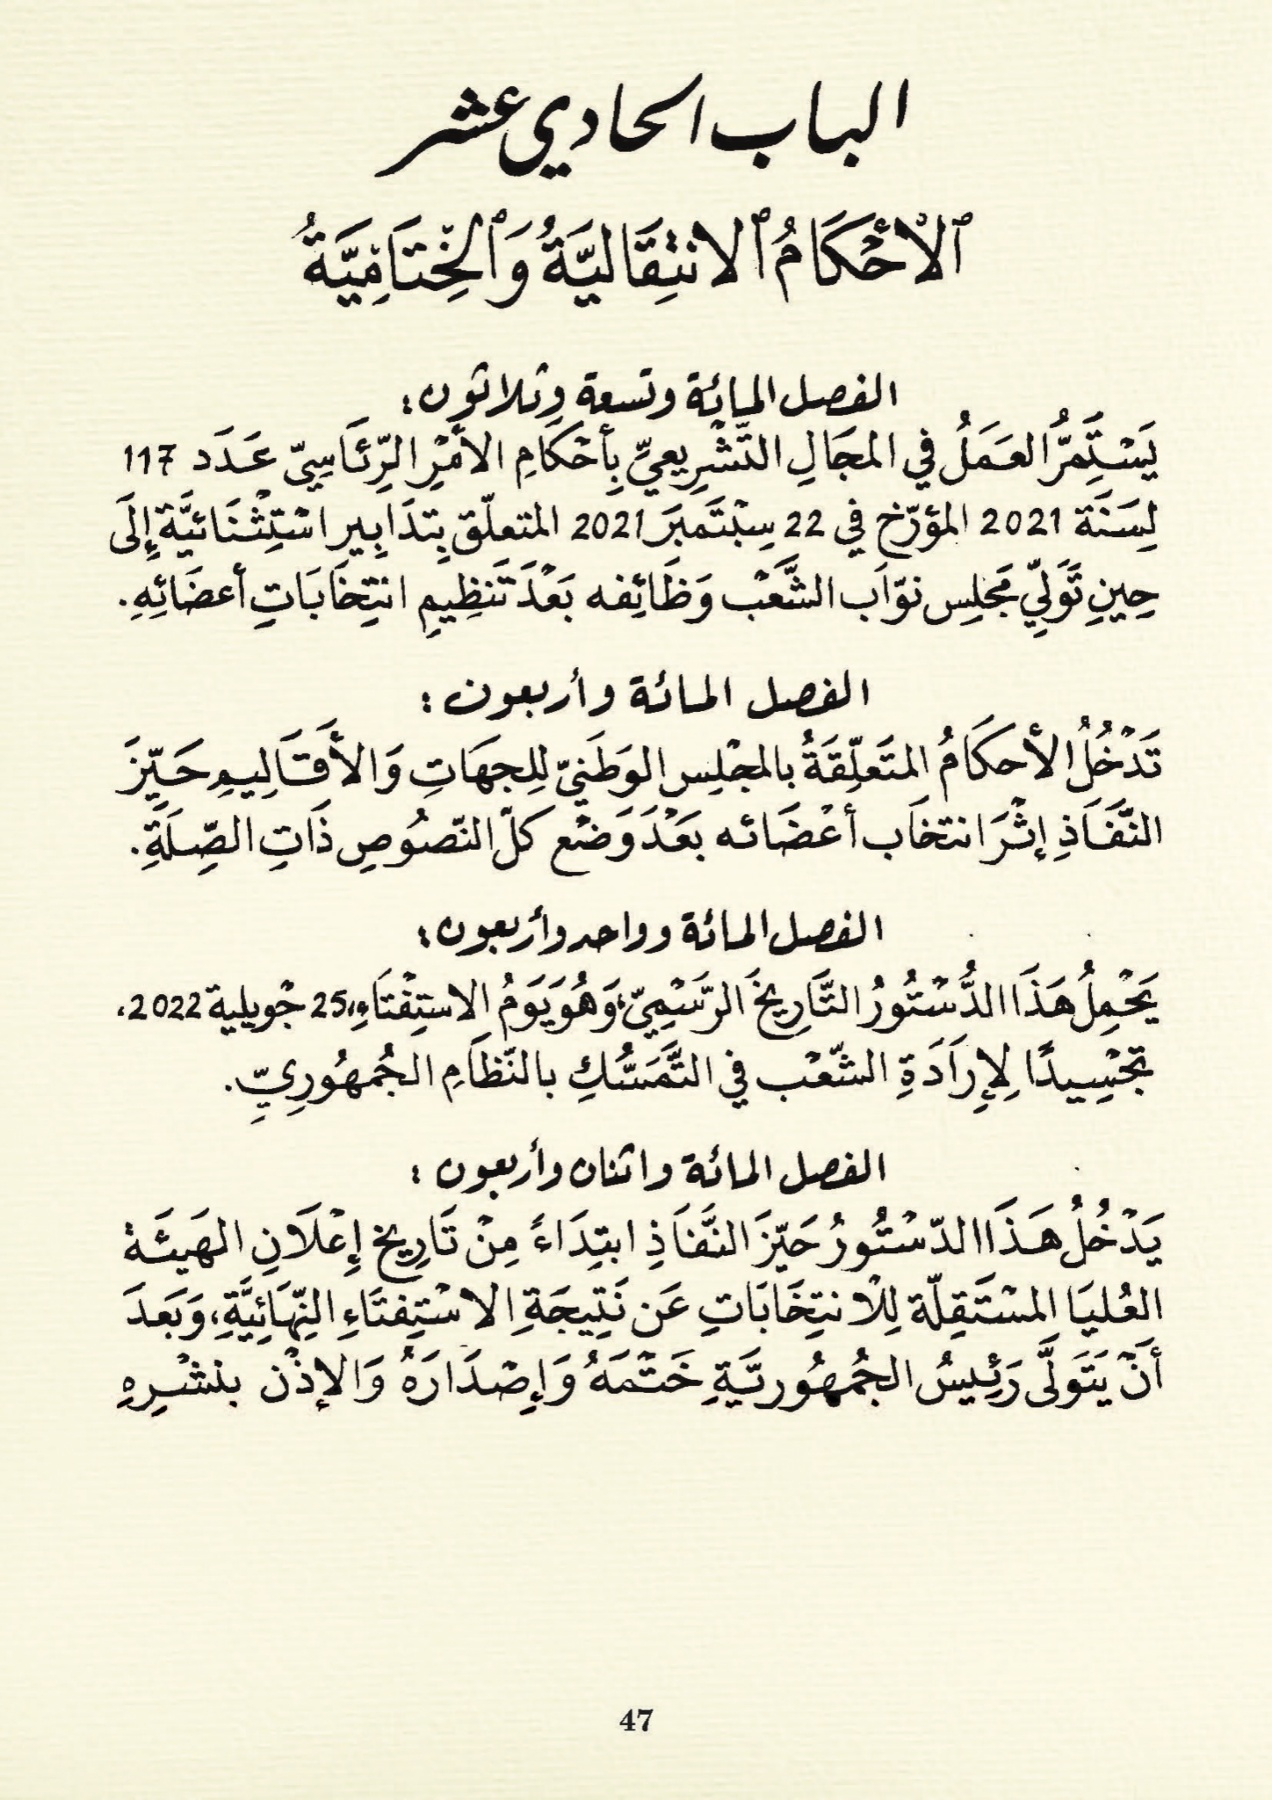 الباب الحادي عشر
ٱلْأَحْكَامُ ٱلانتِقَاليَّةُ وَٱلْخِتَامِيَّةُ
الفصل المائة وتسعة وثلاثون:
يَسْتَمِرُّ العَمَلُ في المجَالِ التَّشْرِيعيِّ بِأحْكَامِ الأمْرِ الرِّئَاسِيّ عَدَد 117
لِسَنَة 2021 المؤرّخ في 22 سِبْتَمبَرَ 2021 المتعلّق بِتدَابِير اسْتِثْنَائيَّة إِلَى
حِينِ تَوَلِّي مَجْلِس نوّاَب الشَّعْب وَظَائِفه بَعْدَ تَنظِيمِ انتِخَابَاتِ أعضَائِهِ.
الفصل المائة وأربعون:
تَدْخُلُ الأحكَامُ المتَعلِّقَةُ بالمجْلِس الوَطَنِيّ لِلجِهَاتِ وَالأَقَالِيمِ حَيِّزَ
النَّفَاذِ إثْرَ انتخَاب أعْضَائه بَعْدَ وَضْع كلّ النّصُوصِ ذَاتِ الصِّلَةِ.
الفصل المائة وواحد وأربعون:
يَحْمِلُ هَذَا الدُّسْتُورُ التَّارِيخَ الرَّسْمِيّ، وَهُوَ يَوَمُ الاستِفْتَاءِ، 25 جْويلية 2022،
تجْسِيدًا لِإِرَادَةِ الشّعْب في التَّمَسُّكِ بالنّظَامِ الجُمهُورِيِّ.
الفصل المائة واثنان وأربعون:
يَدْخُلُ هَذَا الدّسْتُورُ حَيّزَ النَّفَاذِ ابتِدَاءً مِنْ تَارِيخ إِعْلَانِ الهَيئَة
العُليَا المسْتَقِلّة لِلْانتِخَابَاتِ عَن نَتِيجَةِ الاسْتِفتَاءِ النِّهَائِيَّةِ، وَبَعدَ
أنْ يَتَوَلَّى رَئِيسُ الجُمهُوريَّةِ خَتْمَهُ وَإِصْدَارَهُ وَالإذْن بنشْرِهِ
47